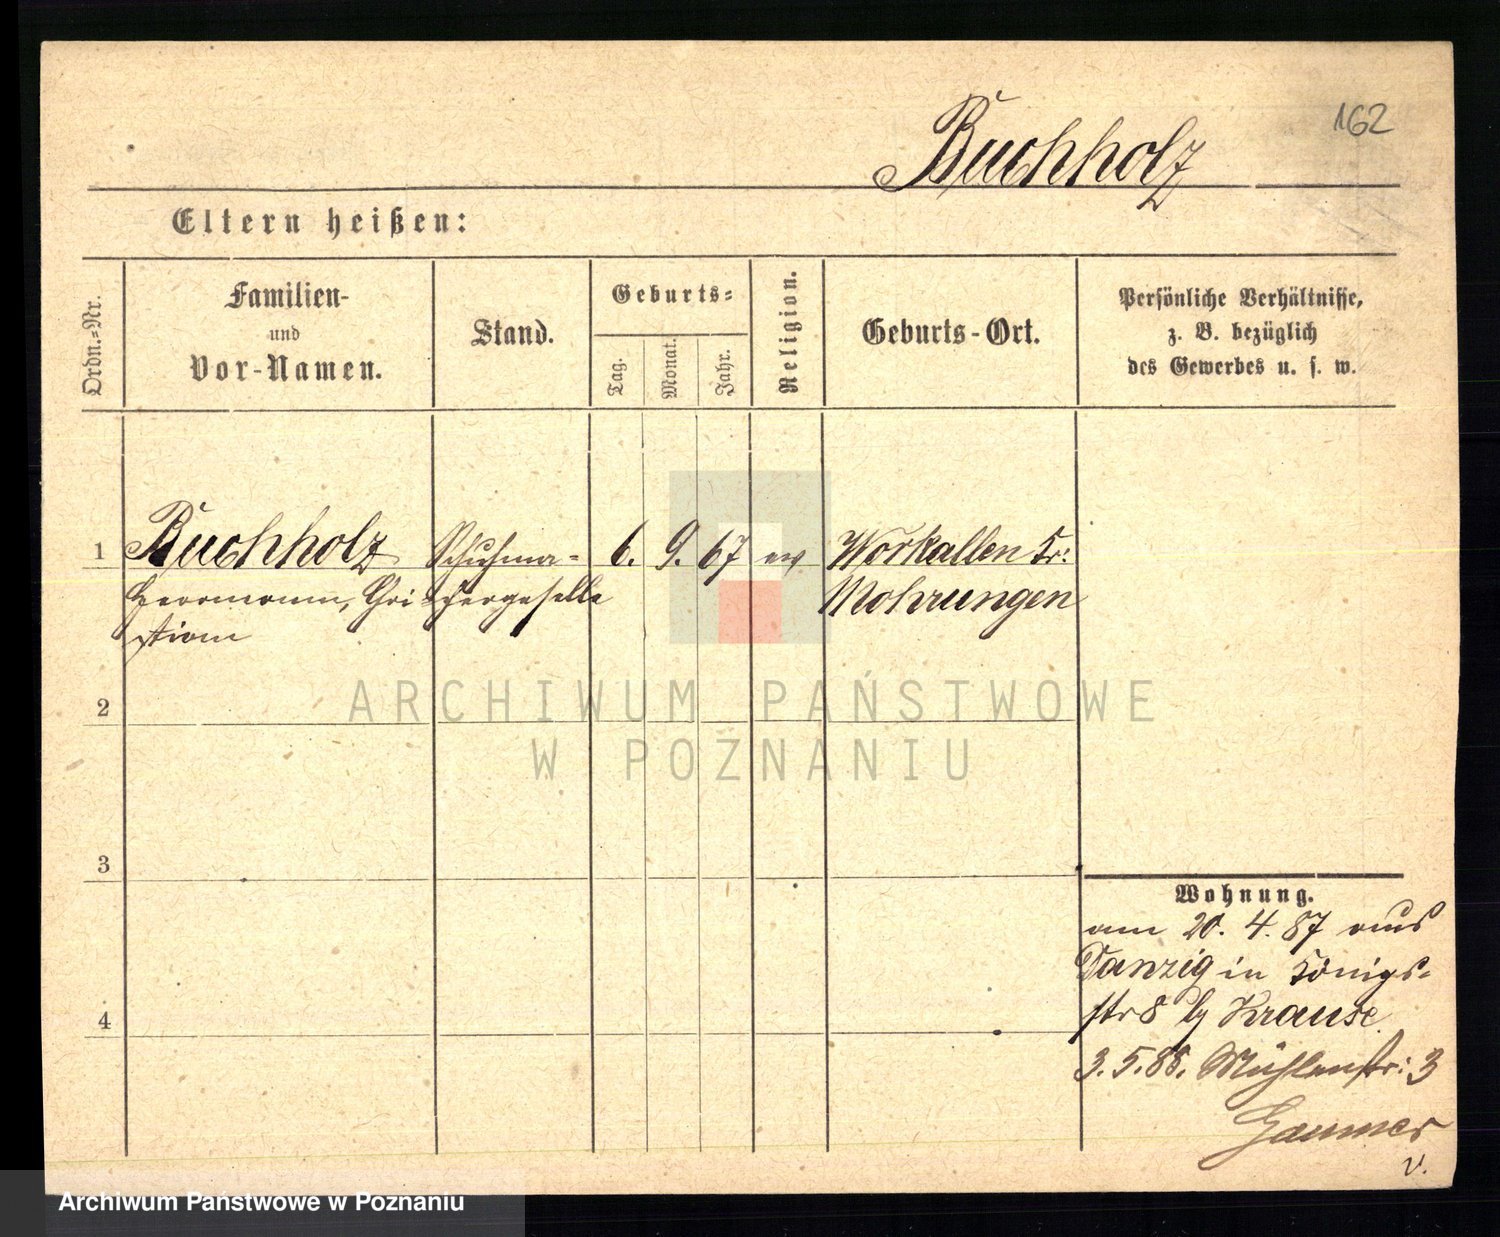 162
Buchholz
Eltern heißen:
Ordn.-Nr.
Familien-
und
Vor-Namen.
Stand.
Geburts-
Tag.
Monat.
Jahr.
Religion.
Geburts-Ort.
Persönliche Verhältnisse,
z. B. bezüglich
des Gewerbes u. s. w.
1
Buchholz
Herrmann, Chri-
stian
Schuhma-
chergeselle
6.
9.
67
ev
Workallen Kr:
Mohrungen
2
3
4
Wohnung.
am 20. 4. 87 aus
Danzig in Königs-
str 8 by Krause
3. 5. 88. Mühlenstr: 3
v.
ARCHIWUM PAŃSTWOWE
W POZNANIU
Archiwum Państwowe w Poznaniu